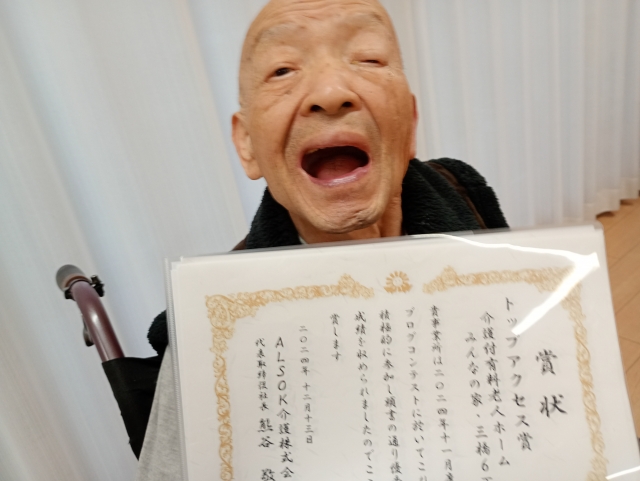 賞状
トップアクセス賞
介護付有料老人ホーム
みんなの家・三橋6丁
貴事業所は二〇二四年十一月度
ブログコンテストに於いてこ
積極的に参加し頭書の通り優
成績を収められましたのでここ
賞します
二〇二四年十二月十三日
ALSOK介護株式会
代表取締役社長 熊谷 敬